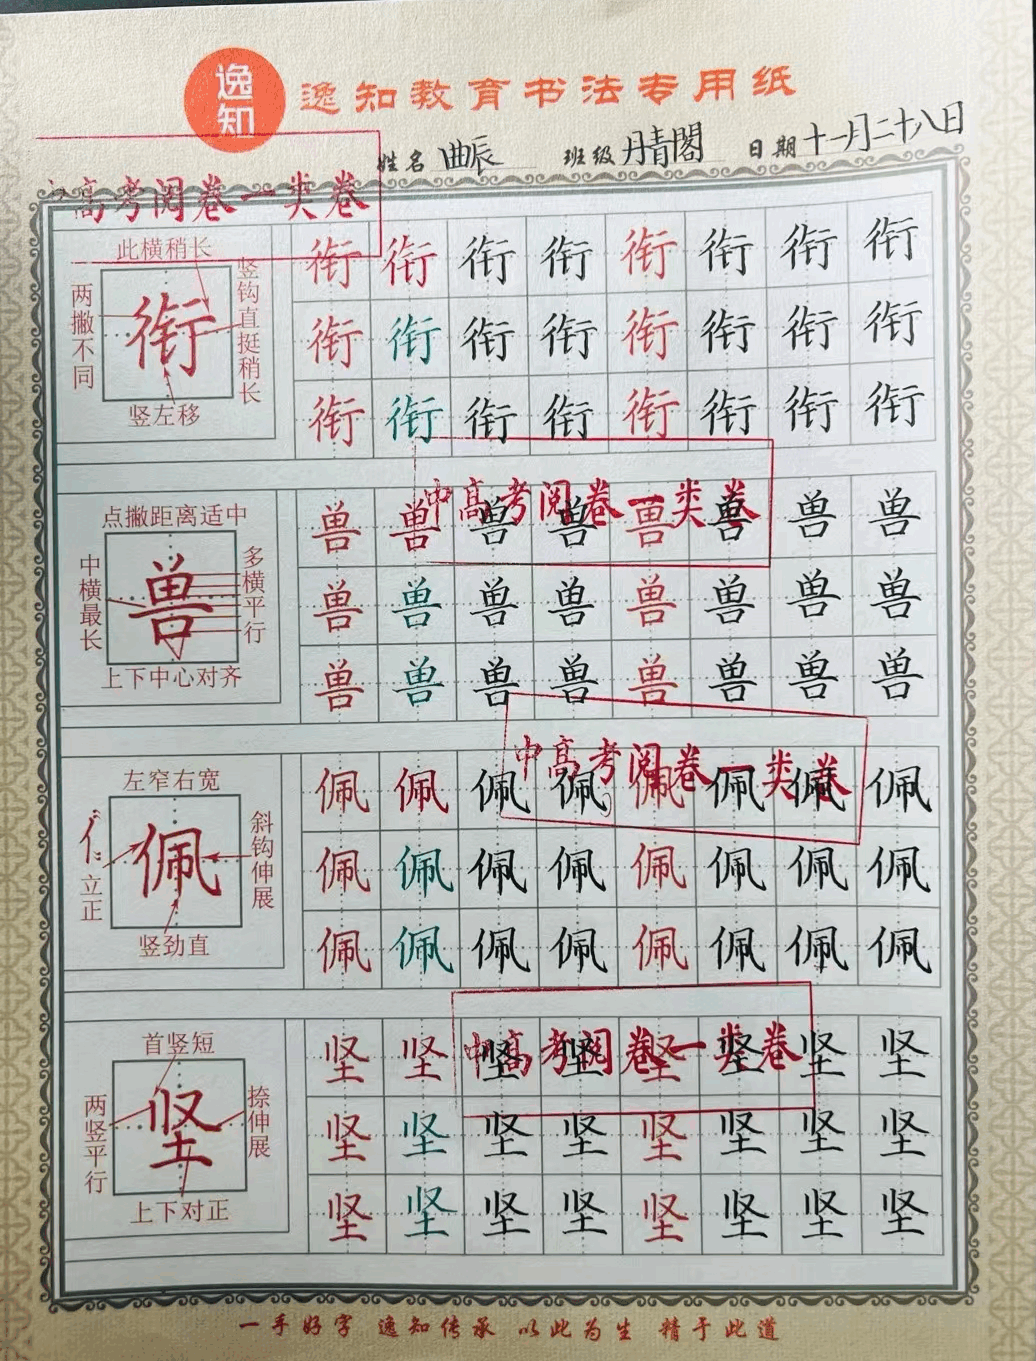 逸知
逸知教育书法专用纸
姓名 曲辰 班级 丹青閣 日期 十一月二十八日
高考阅卷一类卷
此横稍长
两撇不同
衔
竖钩直挺稍长
竖左移
衔 衔 衔 衔 衔 衔 衔 衔
衔 衔 衔 衔 衔 衔 衔 衔
衔 衔 衔 衔 衔 衔 衔 衔
中高考阅卷一类卷
点撇距离适中
中横最长
兽
多横平行
上下中心对齐
兽 兽 兽 兽 兽 兽 兽 兽
兽 兽 兽 兽 兽 兽 兽 兽
兽 兽 兽 兽 兽 兽 兽 兽
中高考阅卷一类卷
左窄右宽
亻立正
佩
斜钩伸展
竖劲直
佩 佩 佩 佩 佩 佩 佩 佩
佩 佩 佩 佩 佩 佩 佩 佩
佩 佩 佩 佩 佩 佩 佩 佩
中高考阅卷一类卷
首竖短
两竖平行
坚
捺伸展
上下对正
坚 坚 坚 坚 坚 坚 坚 坚
坚 坚 坚 坚 坚 坚 坚 坚
坚 坚 坚 坚 坚 坚 坚 坚
一手好字 逸知传承 以此为生 精于此道